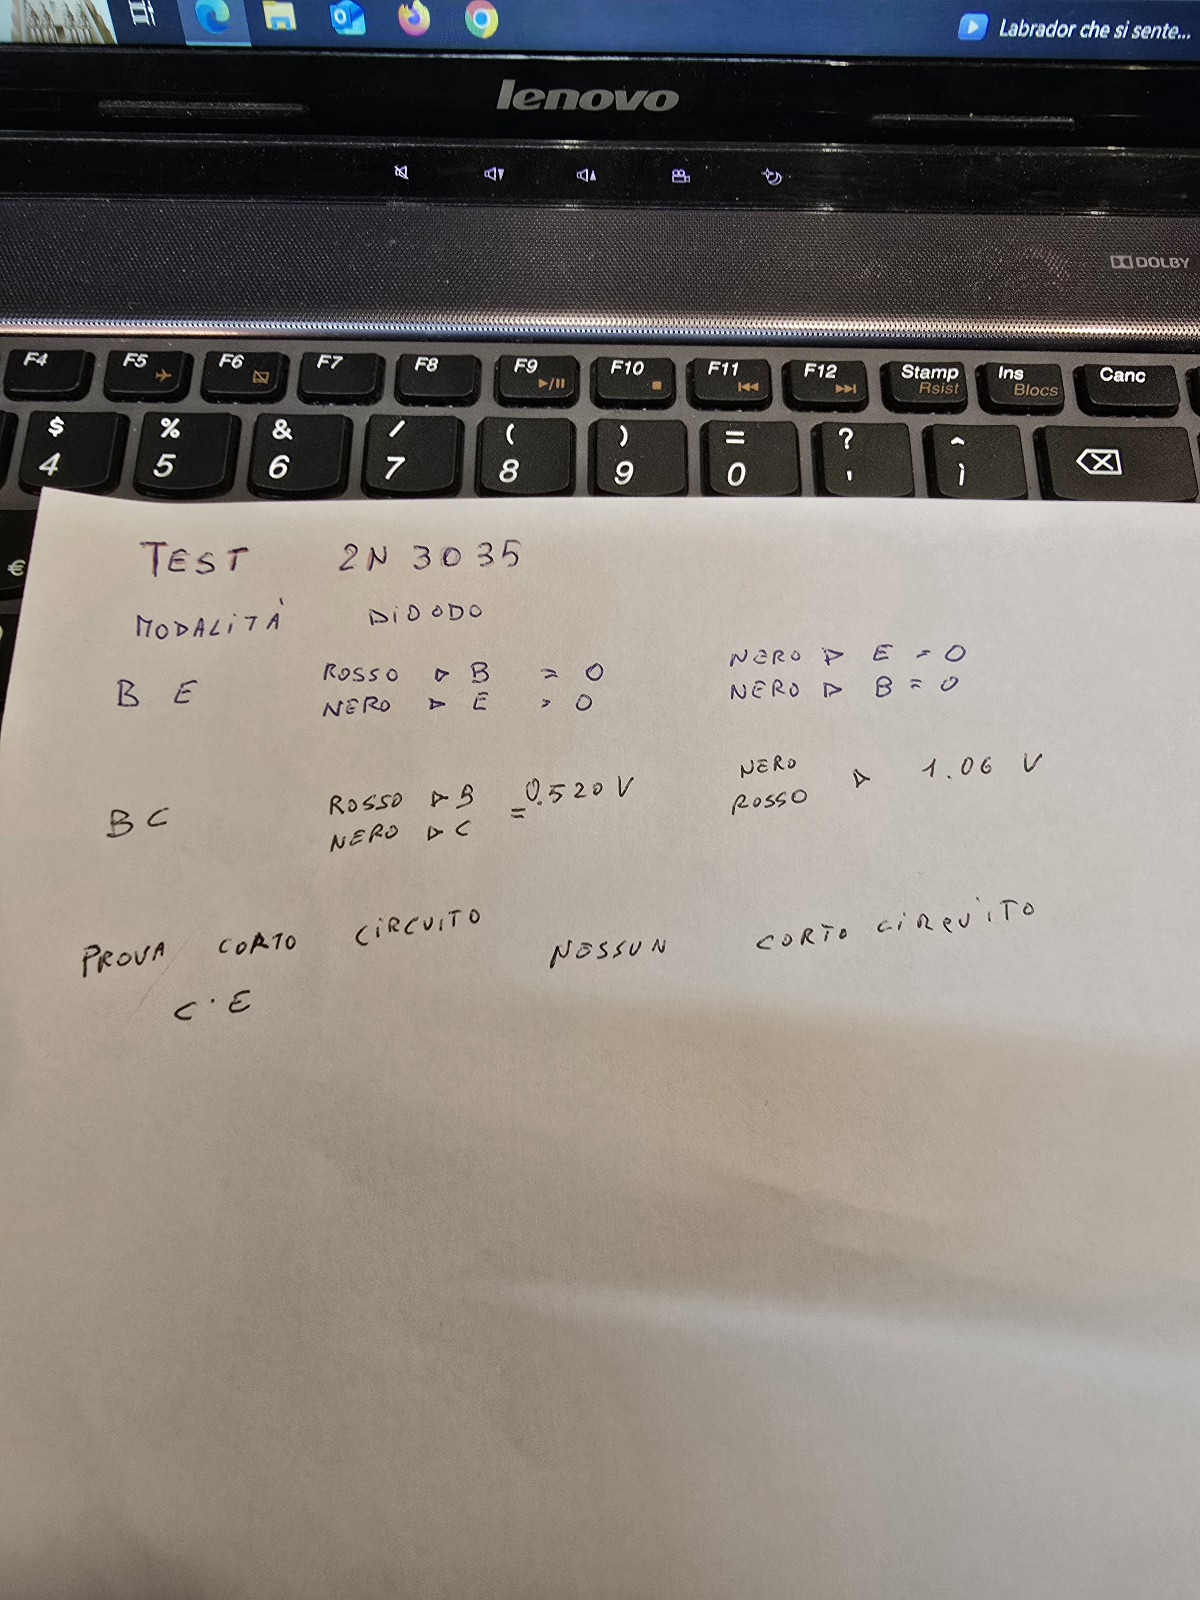 Labrador che si sente...
lenovo
DOLBY
F4 F5 F6 F7 F8 F9 F10 F11 F12 Stamp Rsist Ins Blocs Canc
$ % & / ( ) = ? ^
4 5 6 7 8 9 0 ' ì
€
TEST 2N 3035
MODALITÀ DIDODO
BE ROSSO ▷ B = 0 NERO ▷ E = 0
NERO ▷ E = 0 NERO ▷ B = 0
BC ROSSO ▷ B = 0.520 V NERO ▷ 1.06 V
NERO ▷ C ROSSO
PROVA CORTO CIRCUITO NESSUN CORTO CIRQUITO
C·E